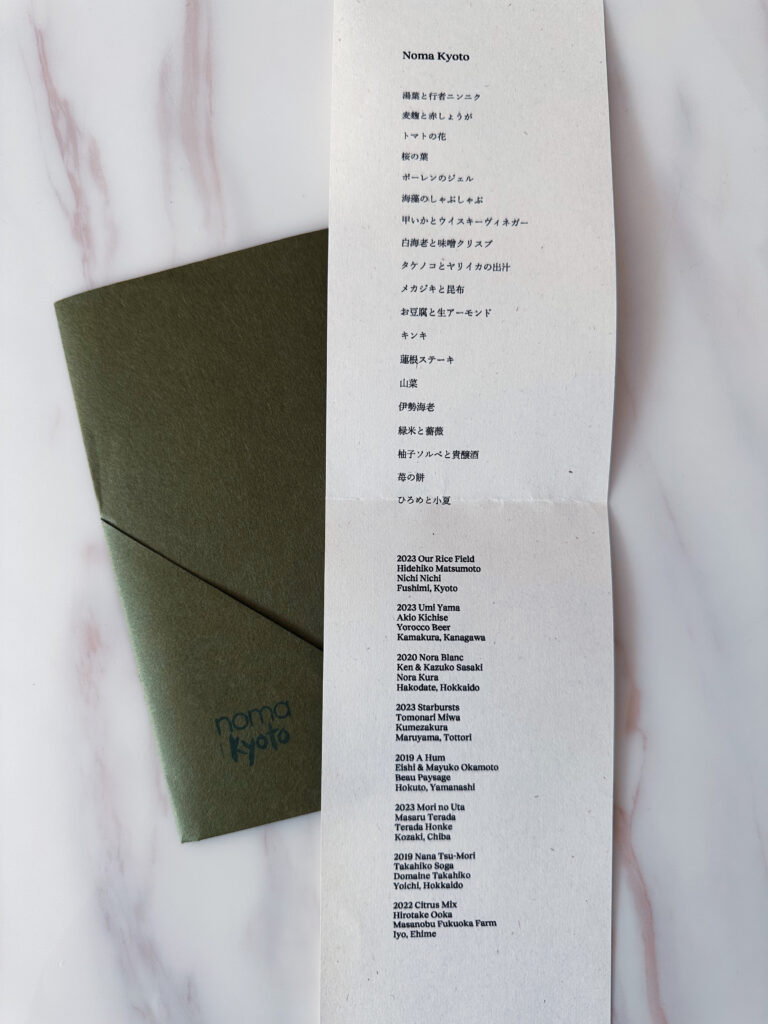 Noma Kyoto
湯葉と行者ニンニク
麦麹と赤しょうが
トマトの花
桜の葉
ポーレンのジェル
海藻のしゃぶしゃぶ
甲いかとウイスキーヴィネガー
白海老と味噌クリスプ
タケノコとヤリイカの出汁
メカジキと昆布
お豆腐と生アーモンド
キンキ
蓮根ステーキ
山菜
伊勢海老
緑米と薔薇
柚子ソルベと貴醸酒
苺の餅
ひろめと小夏
2023 Our Rice Field
Hidehiko Matsumoto
Nichi Nichi
Fushimi, Kyoto
2023 Umi Yama
Akio Kichise
Yorocco Beer
Kamakura, Kanagawa
2020 Nora Blanc
Ken & Kazuko Sasaki
Nora Kura
Hakodate, Hokkaido
2023 Starbursts
Tomonari Miwa
Kumezakura
Maruyama, Tottori
2019 A Hum
Eishi & Mayuko Okamoto
Beau Paysage
Hokuto, Yamanashi
2023 Mori no Uta
Masaru Terada
Terada Honke
Kozaki, Chiba
2019 Nana Tsu-Mori
Takahiko Soga
Domaine Takahiko
Yoichi, Hokkaido
2022 Citrus Mix
Hirotake Ooka
Masanobu Fukuoka Farm
Iyo, Ehime
noma
kyoto